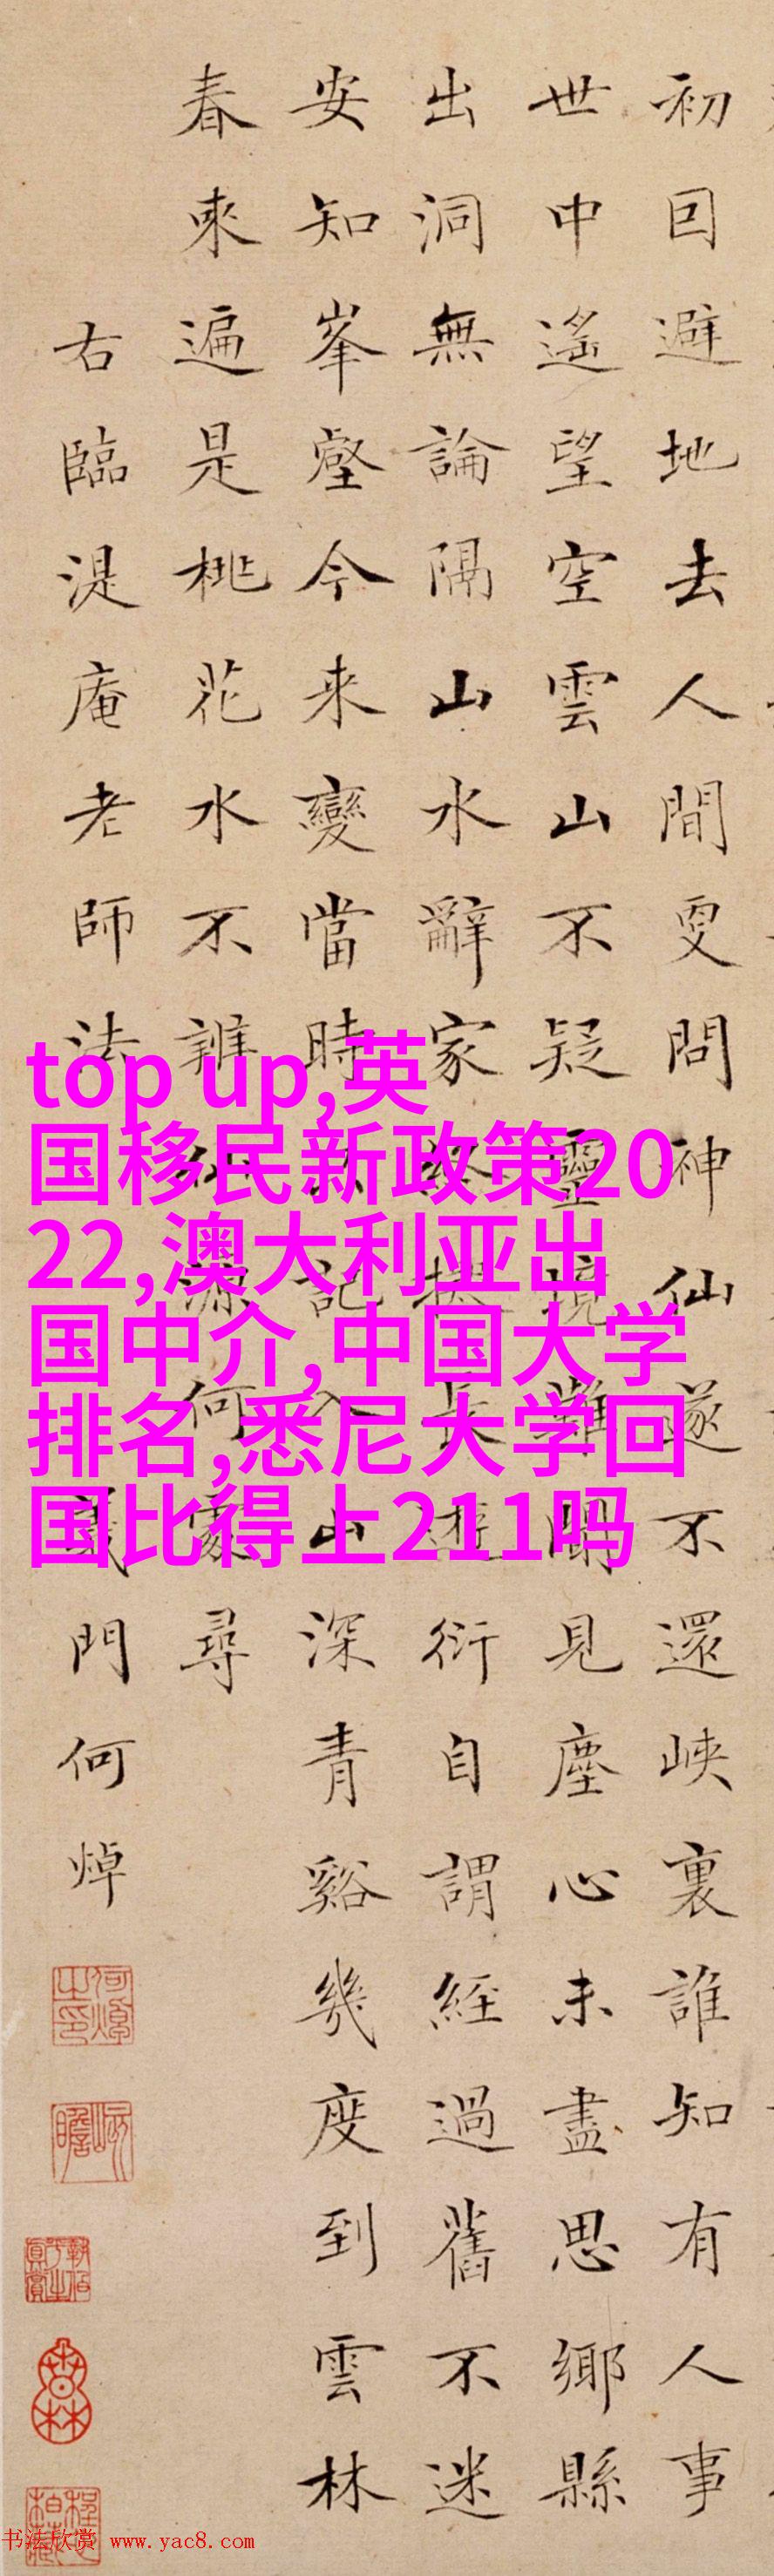 初囙避地去人間更問神仙遂不還峽裏誰知有人事
世中遙望空雲山不疑靈境難聞見塵心未盡思鄉縣
出洞無論隔山水辭家終擬長遊衍自謂經過舊不迷
安知峯壑今来變當時只記入山深青谿幾度到雲林
春來遍是桃花水不辨仙源何處尋
右臨湜庵老師法義門何焯
何焯之印
屺瞻
top up,英
国移民新政策20
22,澳大利亚出
国中介,中国大学
排名,悉尼大学回
国比得上211吗
书法欣赏 www.yac8.com